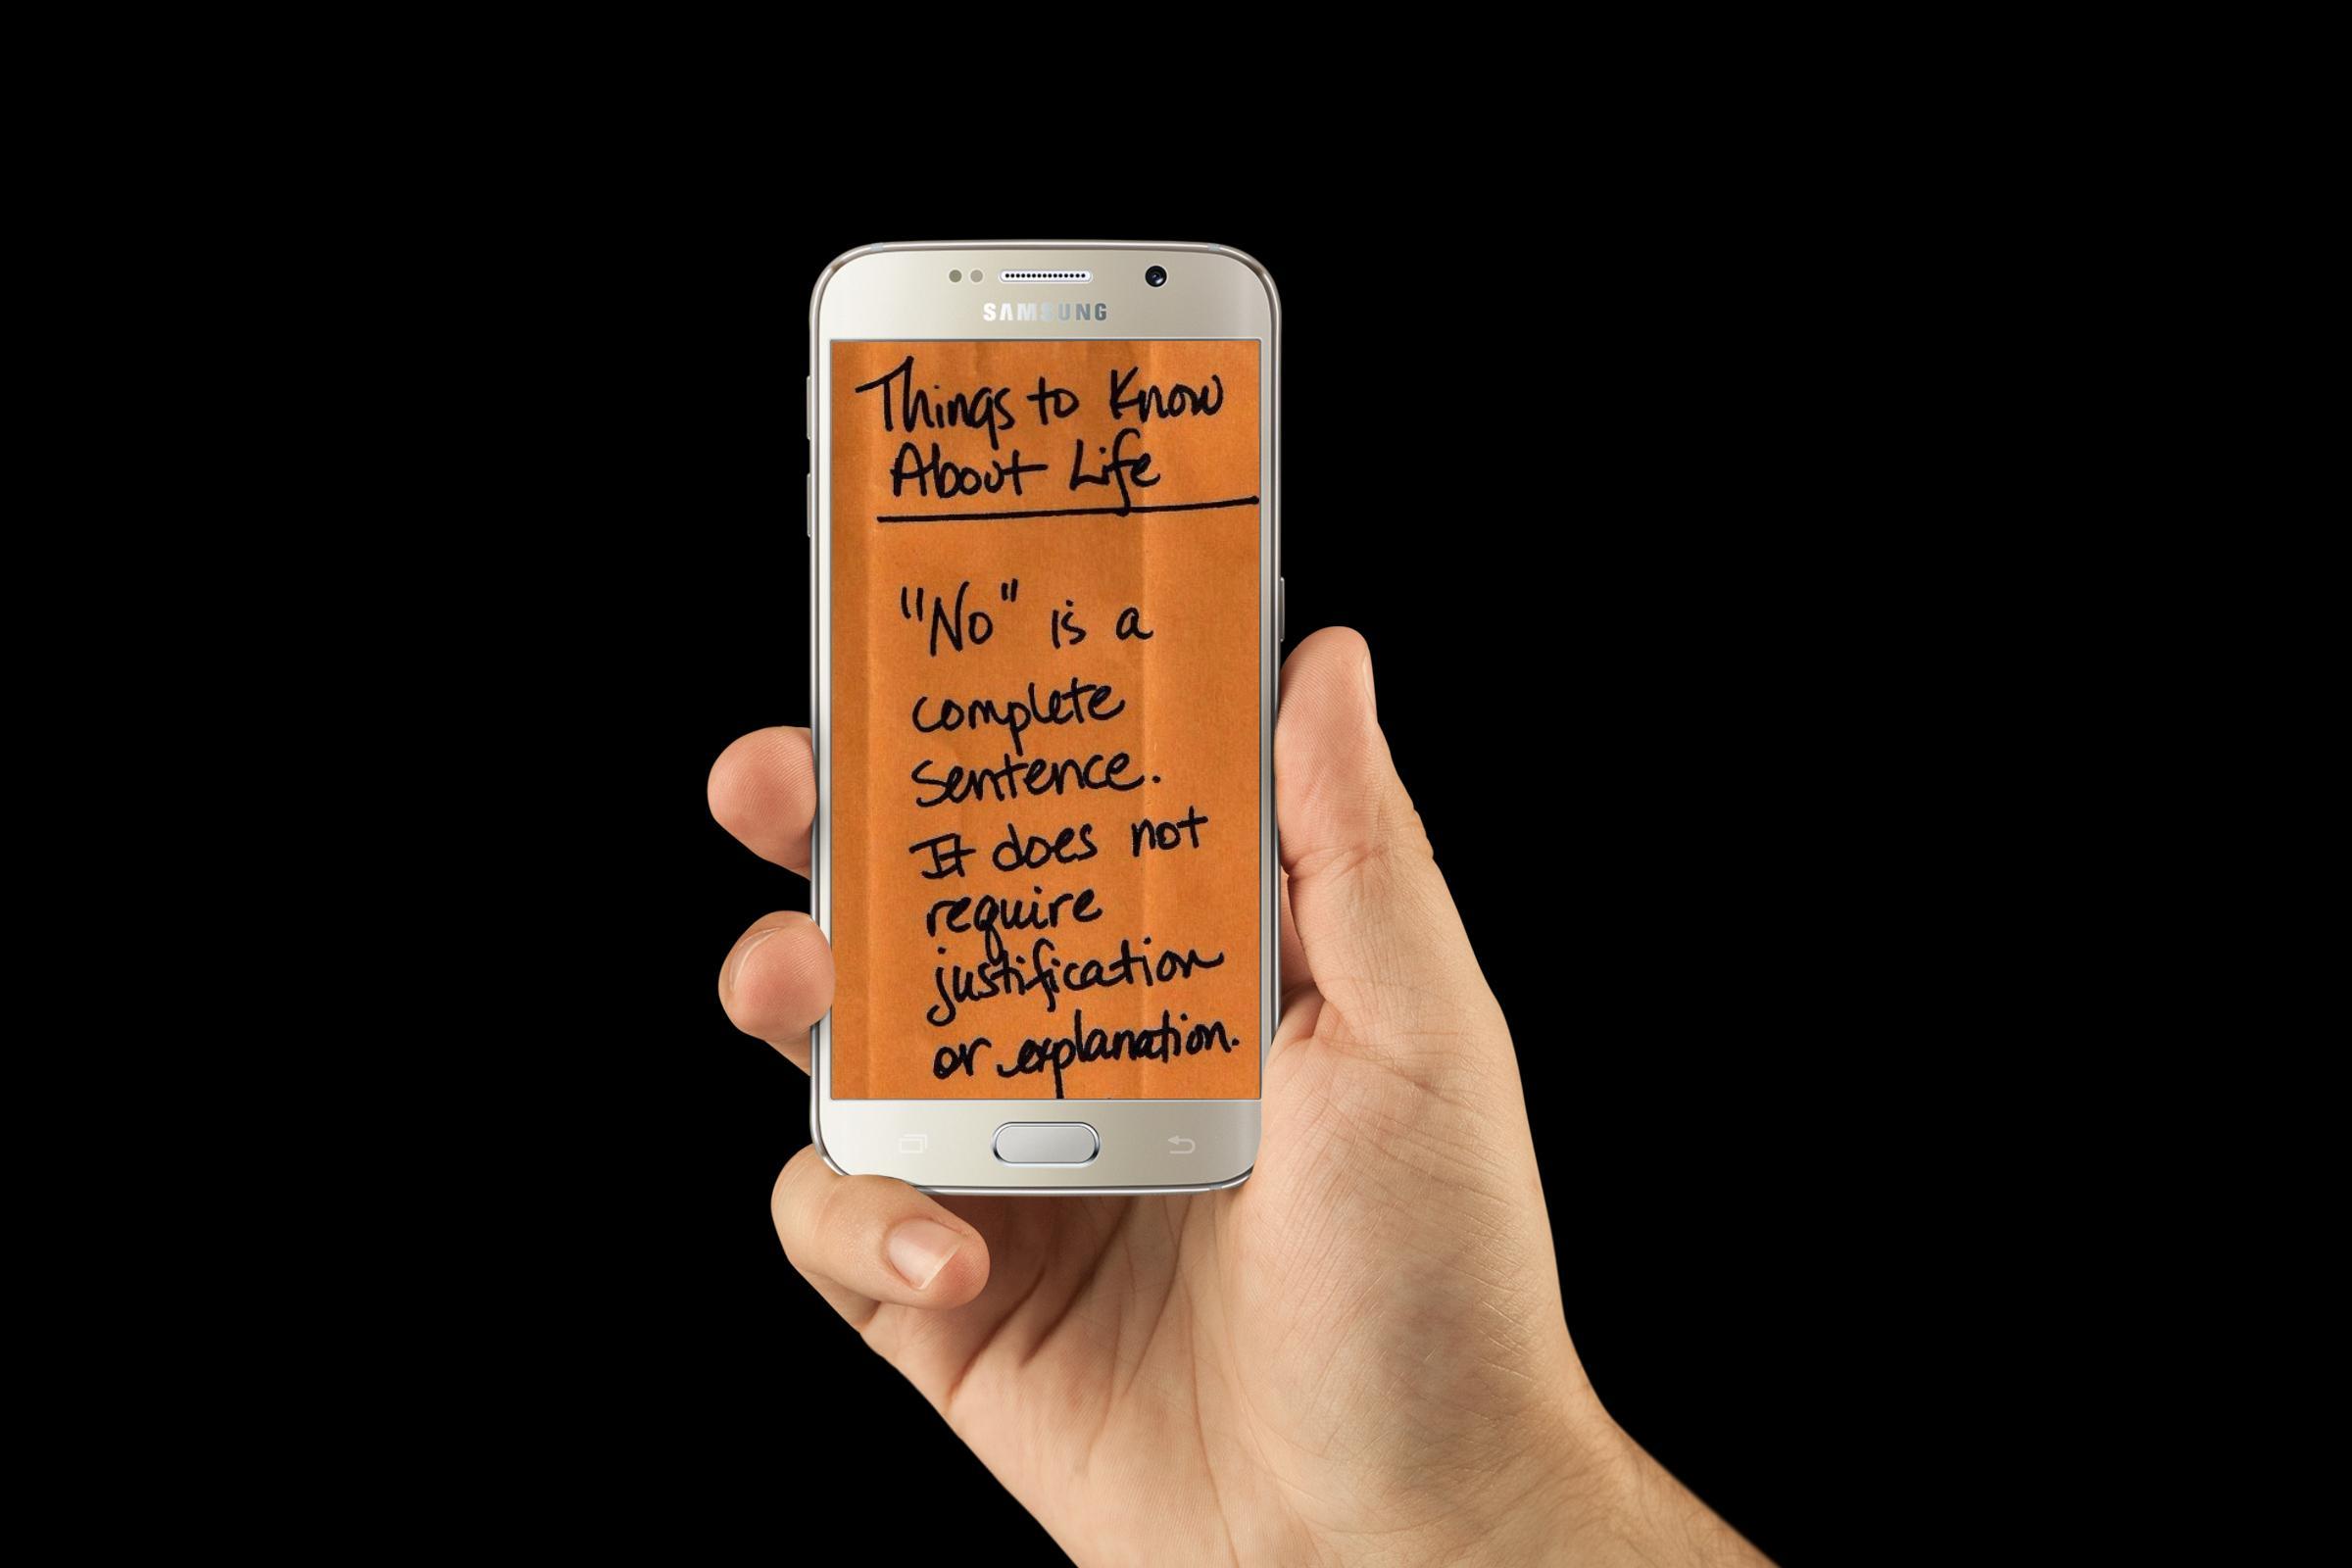 SAMSUNG
Things to Know
About Life
"No" is a
complete
sentence.
It does not
require
justification
or explanation.